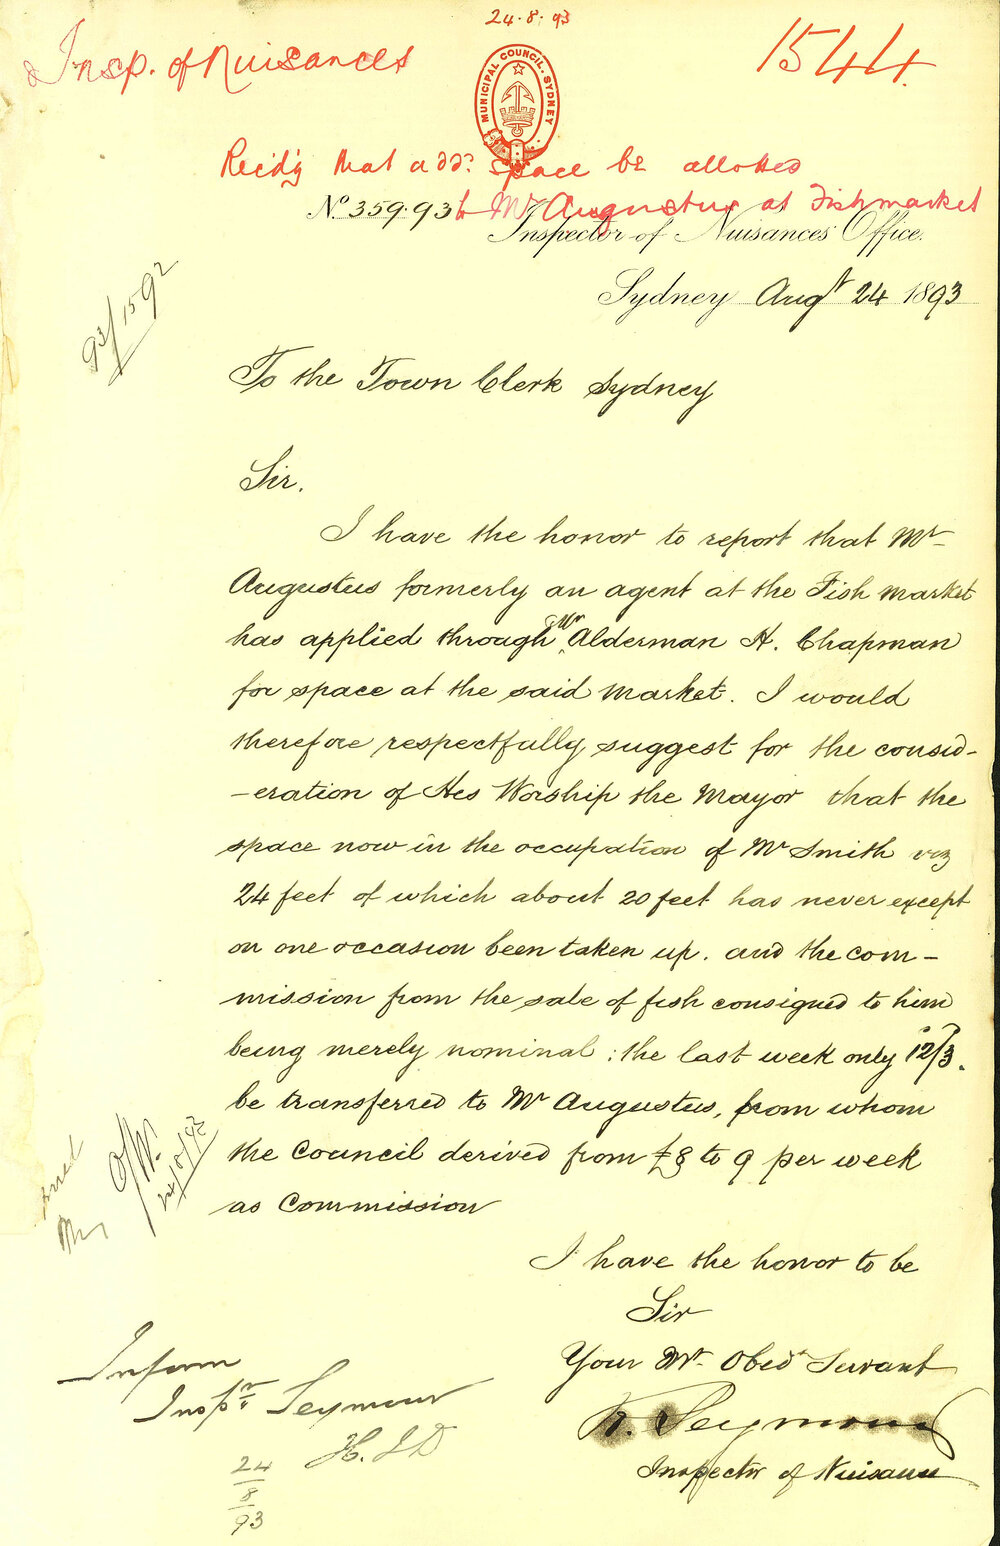 24.8.93
Insp. of Nuisances
1544
MUNICIPAL COUNCIL. SYDNEY
Recd'g that add: space be allotted
to Mr Augustus at Fishmarket
No. 359.93
Inspector of Nuisances Office.
Sydney Augt 24 1893
93/1592
To the Town Clerk Sydney
Sir.
I have the honor to report that Mr
Augustus formerly an agent at the Fish Market
has applied through Mr Alderman H. Chapman
for space at the said Market. I would
therefore respectfully suggest for the consid-
-eration of His Worship the Mayor that the
space now in the occupation of Mr Smith viz
24 feet of which about 20 feet has never except
on one occasion been taken up. and the com-
mission from the sale of fish consigned to him
being merely nominal: the last week only 12/3.
be transferred to Mr Augustus, from whom
the Council derived from £8 to 9 per week
as Commission
I have the honor to be
Sir
Your Mt. Obedt Servant
R. Seymour
Inspector of Nuisances
Inform
Inspr Seymour
24
8
93